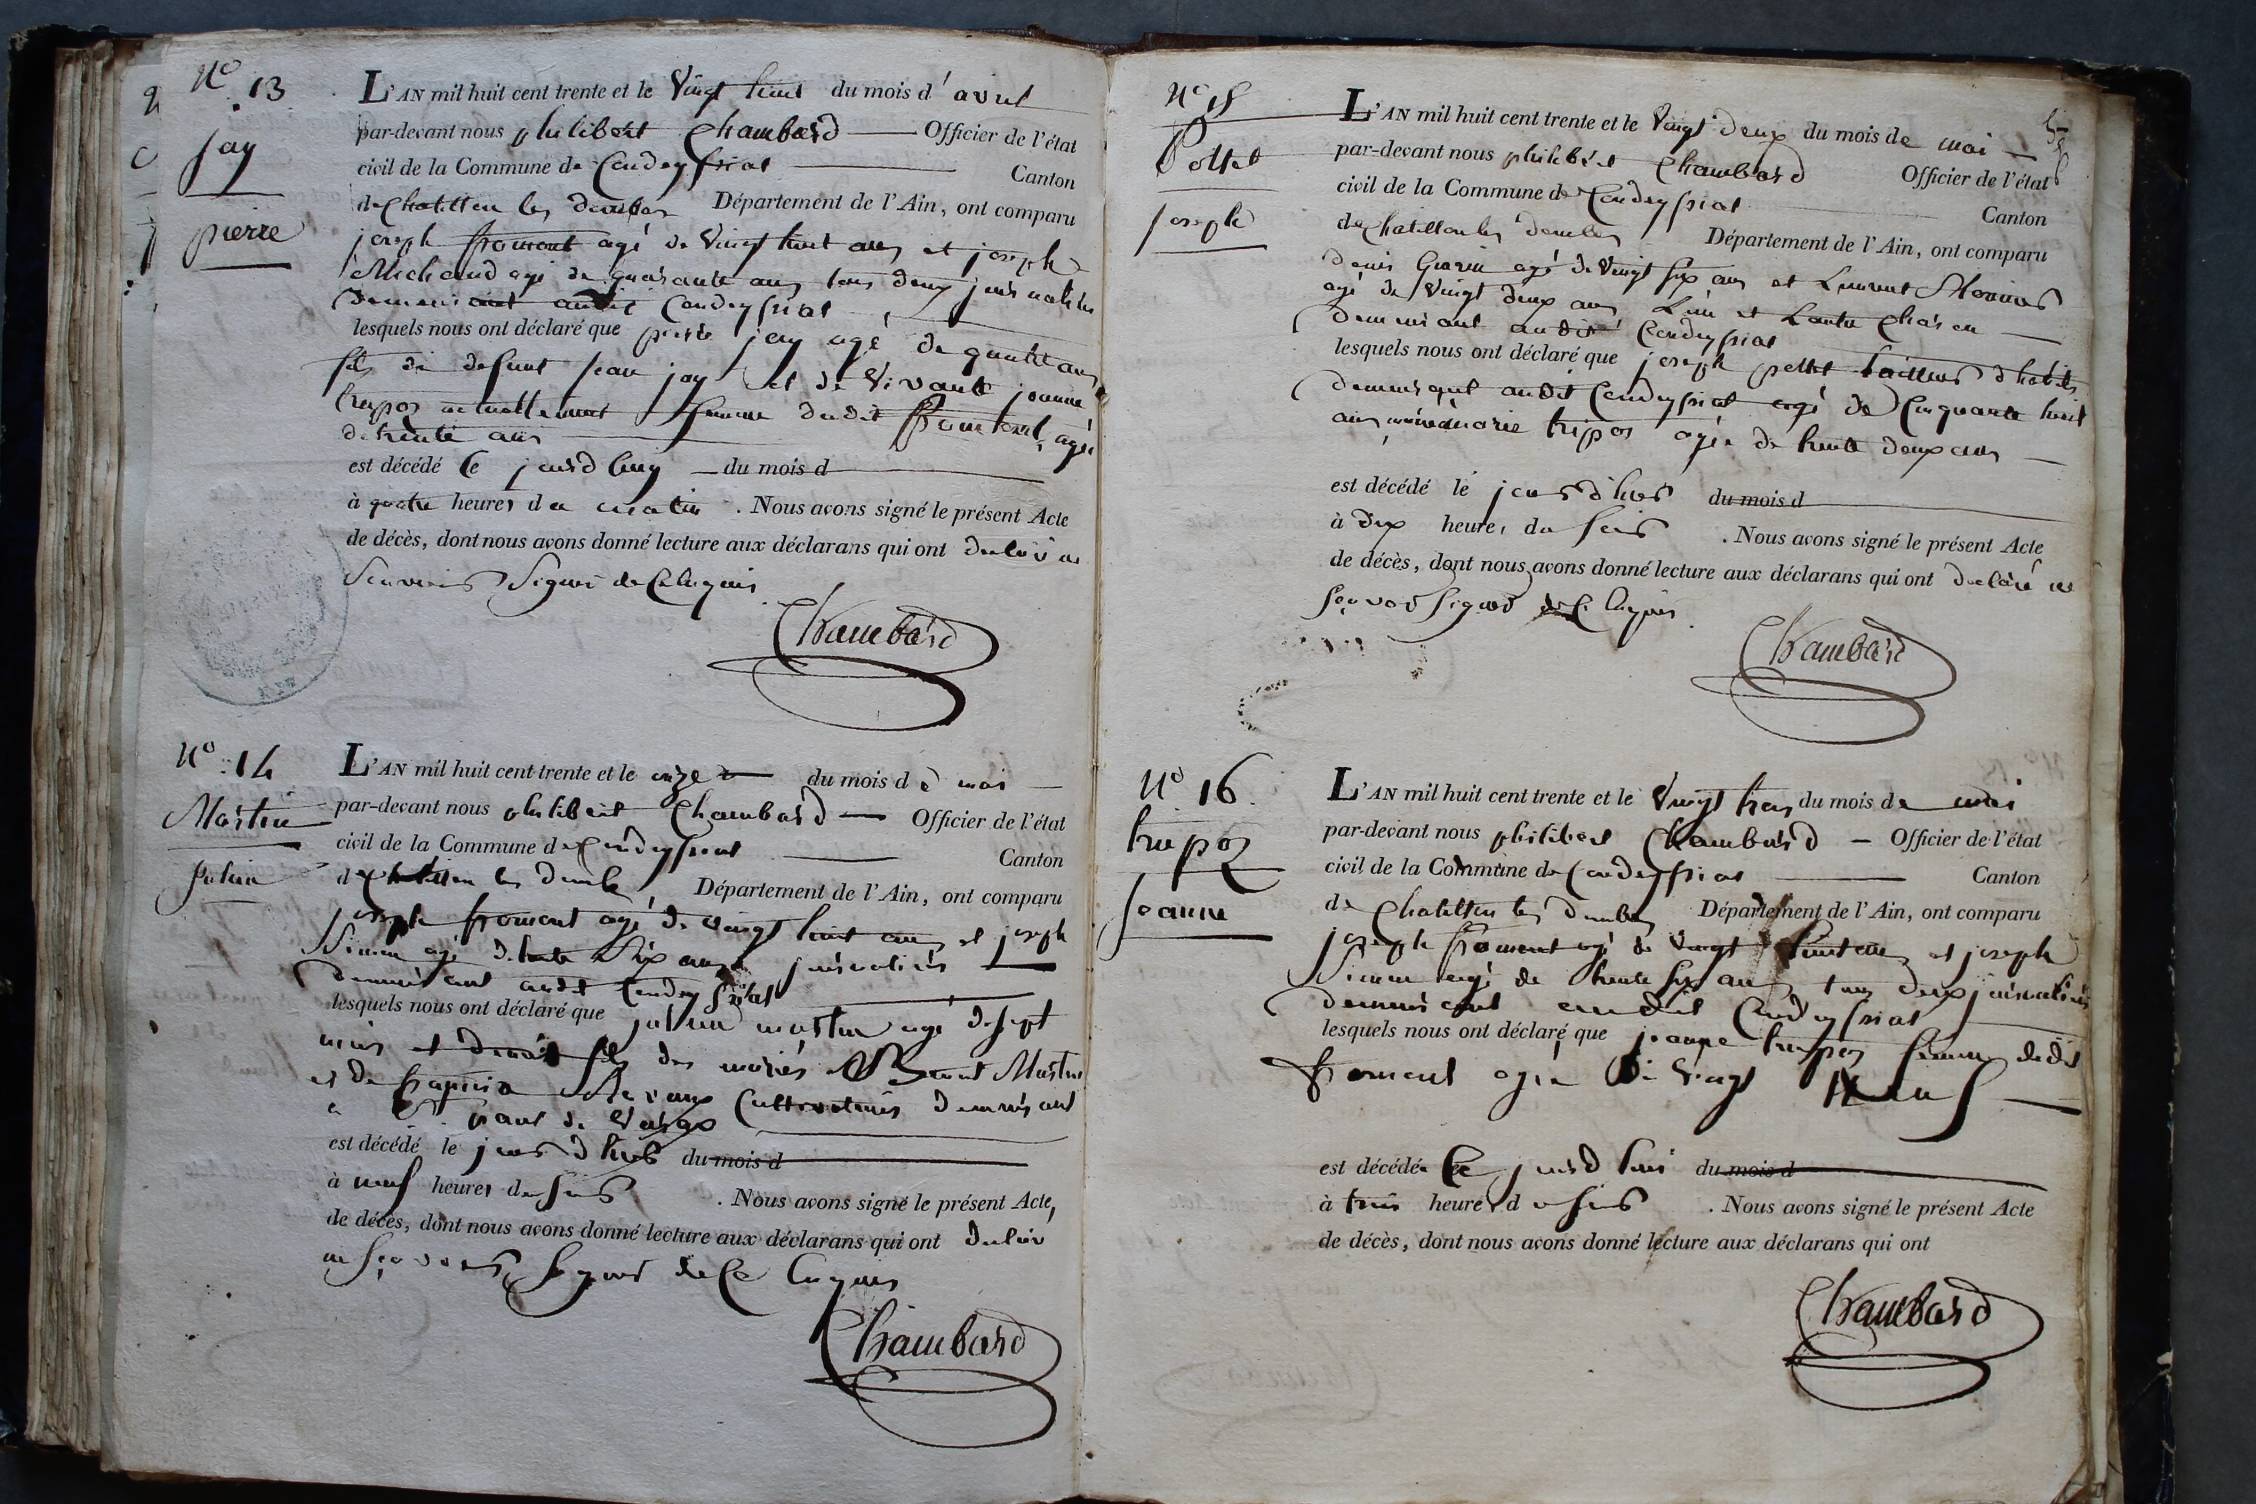 N° 13
Jay
pierre
L'AN mil huit cent trente et le Vingt huit du mois d'avril
par-devant nous philibert Chambard Officier de l'état
civil de la Commune de Condeyssiat Canton
de Chatillon les dombes Département de l'Ain, ont comparu
joseph froment agé de Vingt huit ans et joseph
Michaud agé de quarante ans tous deux journaliers
demeurant audit Condeyssiat
lesquels nous ont déclaré que pierre jay agé de quatre ans
fils de defunt jean jay et de Vivante jeanne
trepoz actuellement femme dudit froment, agée
de trente ans
est décédé le jourdhuy du mois d
à quatre heures du matin . Nous avons signé le présent Acte
de décès, dont nous avons donné lecture aux déclarans qui ont declaré ne
Signer de Ce Requis
Chambard
N° 14
Martin
julien
L'AN mil huit cent trente et le onze du mois de mai
par-devant nous philibert Chambard Officier de l'état
civil de la Commune de Condeyssiat Canton
de Chatillon les dombe Département de l'Ain, ont comparu
joseph froment agé de Vingt huit ans et joseph
agé de trente Six ans journaliers
demeurant audit Condeyssiat
lesquels nous ont déclaré que martin agé de sept
mois et demi fils des mariés Benoit Martin
et de Cultivateurs demeurant
a
est décédé le jourd huis du mois d
à neuf heures du soir . Nous avons signé le présent Acte,
de décès, dont nous avons donné lecture aux déclarans qui ont declaré
ne Sçavoir Signer de Ce Requis
Chambard
N° 15
Pottet
joseph
L'AN mil huit cent trente et le Vingt deux du mois de mai
par-devant nous philibert Chambard Officier de l'état
civil de la Commune de Condeyssiat Canton
de Chatillon les dombes Département de l'Ain, ont comparu
denis agé de Vingt Six ans et Laurent
agé de Vingt deux ans L'un et Lautre
demeurant audit Condeyssiat
lesquels nous ont déclaré que joseph pottet tailleur d'habits
demeurant audit Condeyssiat agé de Cinquante huit
ans marie trepoz agée de trente deux ans
est décédé le jourd'hui du mois d
à dix heures du Soir . Nous avons signé le présent Acte
de décès, dont nous avons donné lecture aux déclarans qui ont declaré ne
Sçavoir Signer de Ce Requis
Chambard
N° 16
trepoz
Jeanne
L'AN mil huit cent trente et le Vingt trois du mois de mai
par-devant nous philibert Chambard Officier de l'état
civil de la Commune de Condeyssiat Canton
de Chatillon les dombes Département de l'Ain, ont comparu
joseph froment agé de Vingt huit ans et joseph
agé de trente Six ans tous deux journaliers
demeurant audit Condeyssiat
lesquels nous ont déclaré que jeanne trepoz femme dudit
froment agée de Vingt
est décédée Ce jourd huis du mois d
à trois heures du soir . Nous avons signé le présent Acte
de décès, dont nous avons donné lecture aux déclarans qui ont
Chambard